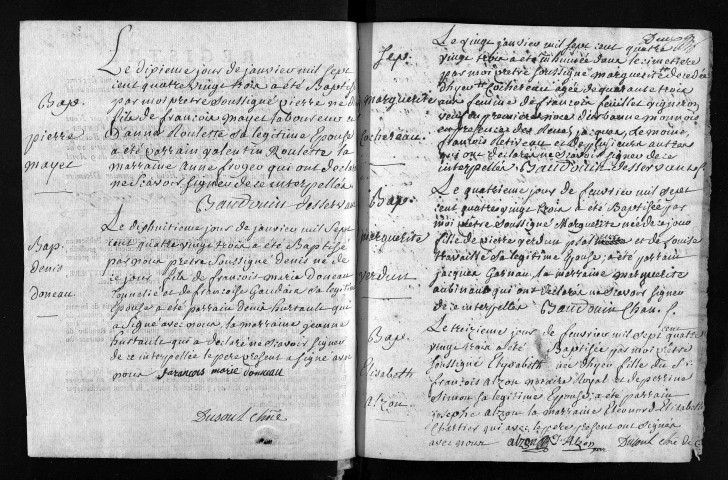 Bap.
pierre
mayet
Le dixieme jour de janvier mil sept
cent quatre vingt trois a été Baptisé
par moi pretre soussigné pierre né
fils de francois mayet laboureur
d'anne Roulette sa legitime Epouse
a été parrain valentin Roulette la
marraine anne froger qui ont declaré
ne scavoir signer de ce interpellés
Baudouin desservant
Bap.
Denis
Doneau.
Le dixhuitieme jour de janvier mil sept
cent quatre vingt trois a été Baptisé
par nous pretre soussigné denis né de
ce jour fils de francois marie Doneau
et de francoise Gaudais sa legitime
Epouse a été parrain denis hurtault qui
a signé avec nous, la marraine jeanne
hurtault qui a declaré ne scavoir signer
de ce interpellée le pere present a signé avec
nous francois marie doneau
Dusoul
Sep.
marguerite
Cochereau.
Le vingt janvier mil sept cent quatre
vingt trois a été inhumée dans le cimetiere
par moi pretre soussigné marguerite decedée
d'hyer Cochereau agée de quarante trois
ans femme de francois feuillet vigneron
veuve en premiere noce d'etienne monnoir
en presence de jacques, demoine,
francois et de plusieurs autres
qui ont declaré ne scavoir signer de ce
interpellés Baudouin desservant
Bap.
marguerite
verdun
Le quatrieme jour de fevrier mil sept
cent quatre vingt trois a été Baptisée par
moi pretre soussigné Marguerite née de ce jour
fille de pierre verdun et de louise
travaillé sa legitime Epouse, a été parrain
jacques Gasnau, la marraine marguerite
aubinau qui ont declaré ne scavoir signer
de ce interpellés Baudouin Chan.
Bap.
Elisabeth
Alzon.
Le treizieme jour de fevrier mil sept cent quatre
vingt trois a été Baptisée par moi pretre
soussigné Elisabeth née d'hyer fille du Sr
francois alzon notaire Royal et de perrine
Simon sa legitime Epouse, a été parrain
joseph alzon la marraine Eleonord Elisabeth
Chartier qui avec le pere present ont signés
avec nous alzon D. Alzon Dusoul